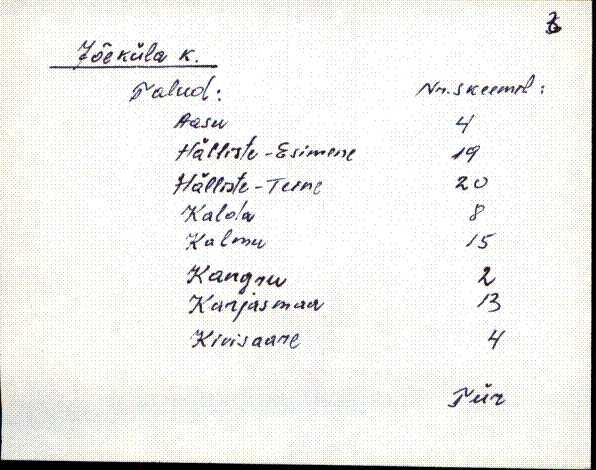 Jõeküla k.
Talud: Nr. skeemil:
Aasu 4
Hälliste-Esimene 19
Hälliste-Teine 20
Kalda 8
Kalmu 15
Kangru 2
Karjasmaa 13
Kivisaare 4
Tür